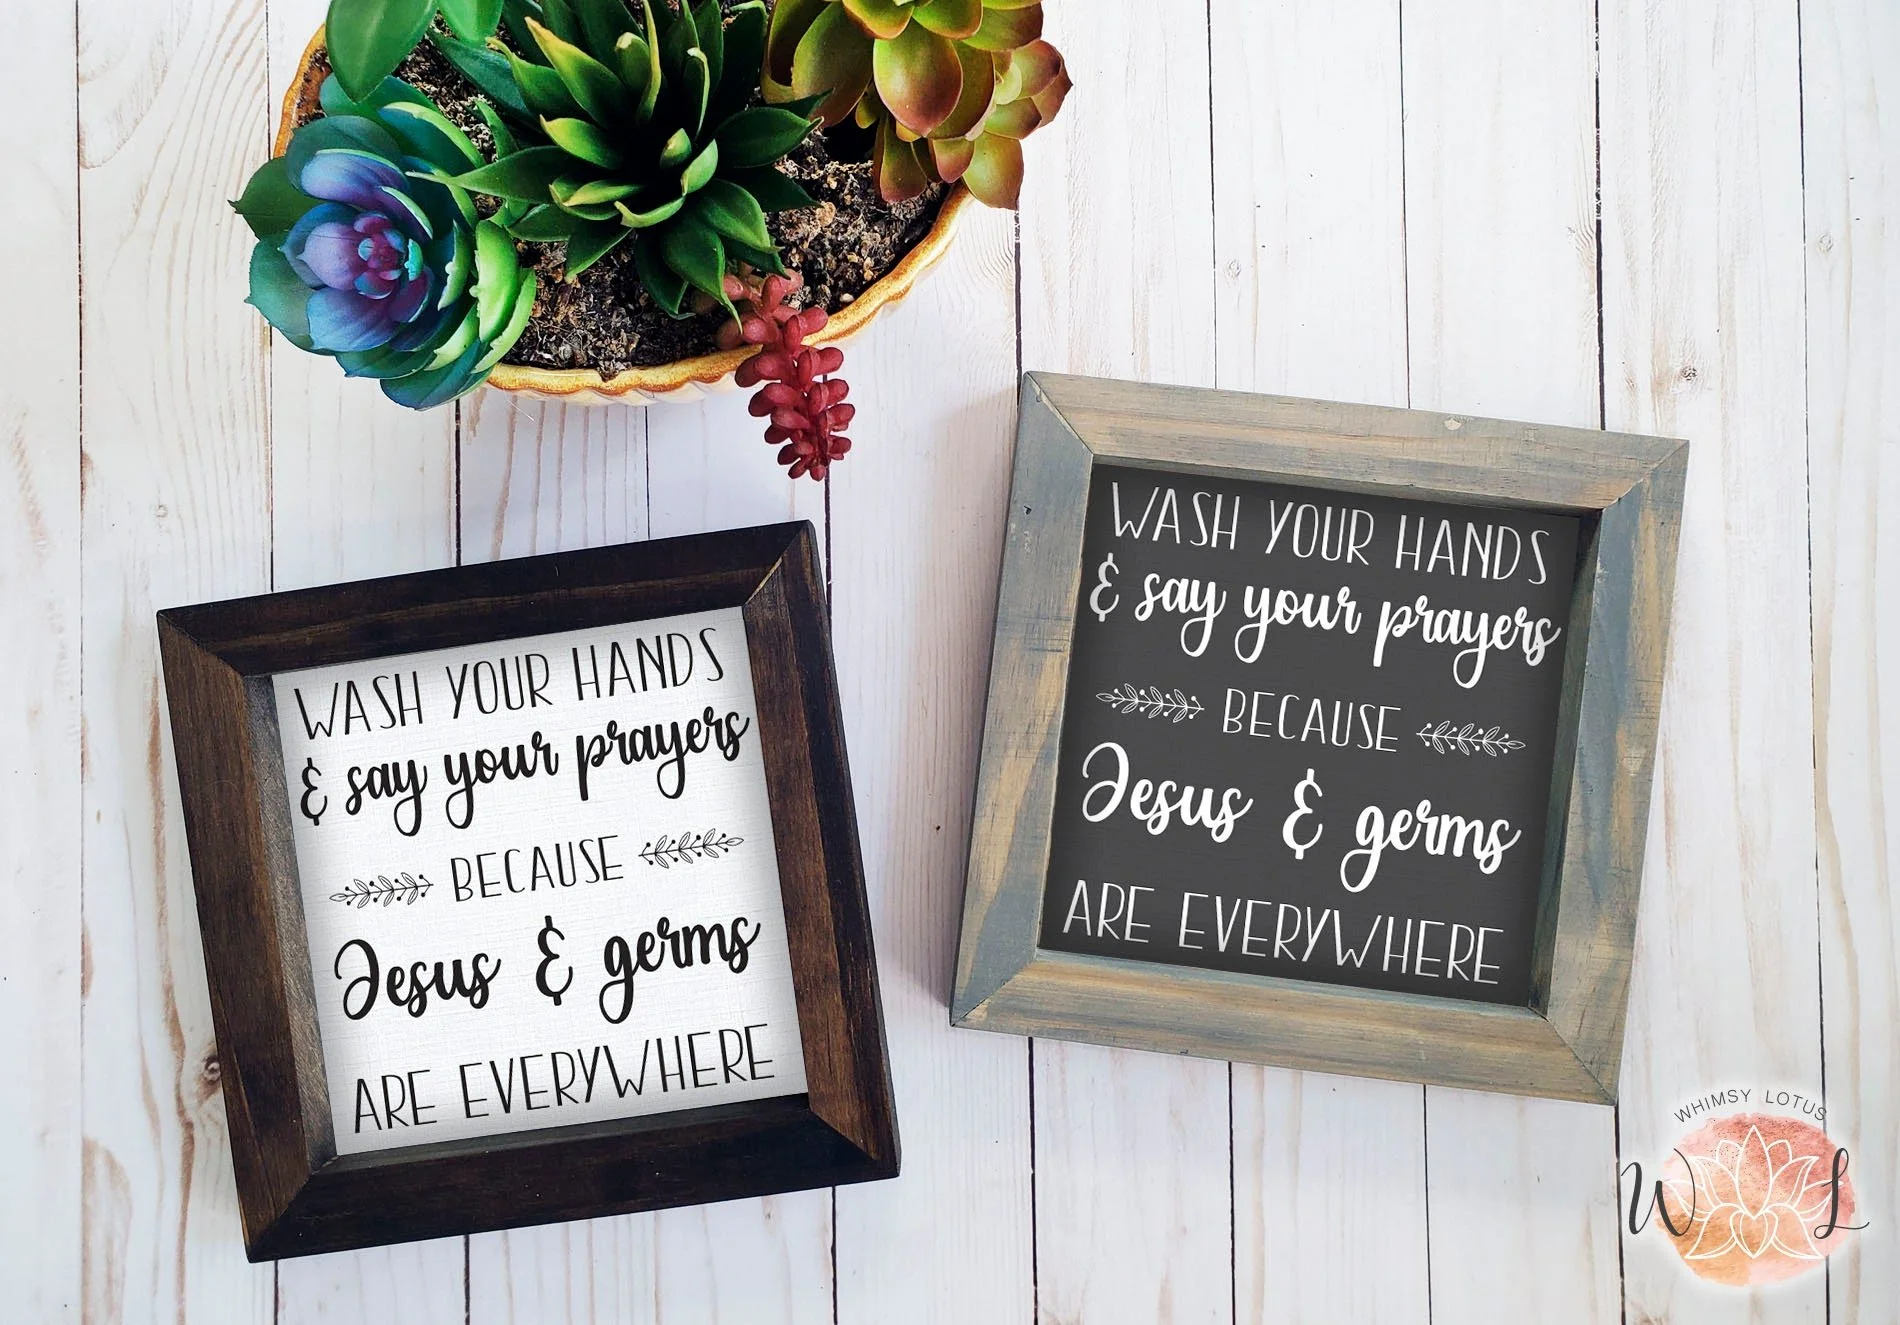 WASH YOUR HANDS
& say your prayers
BECAUSE
Jesus & germs
ARE EVERYWHERE
WASH YOUR HANDS
& say your prayers
BECAUSE
Jesus & germs
ARE EVERYWHERE
WHIMSY LOTUS
W L